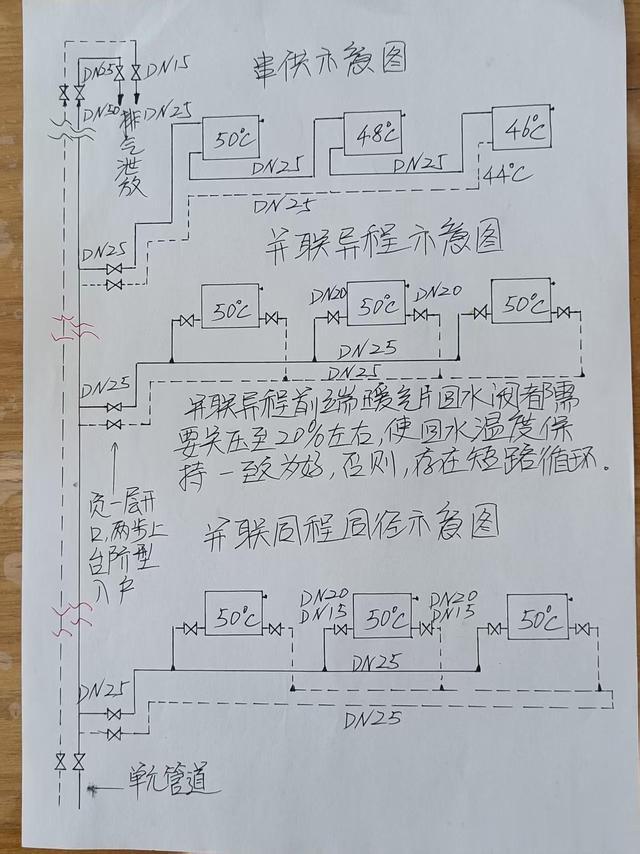 串供示意图
DN25 DN15
DN50 DN25
排气泄放
50℃ 48℃ 46℃
DN25 DN25
44℃
DN25
DN25
并联异程示意图
50℃ DN20 50℃ DN20 50℃
DN25
DN25
DN25
并联异程前端暖气片回水阀都需
要关压至20%左右,使回水温度保
持一致为好,否则,存在短路循环。
负一层开
口,两步上
台阶型
入户
并联同程同径示意图
50℃ DN20 DN15 50℃ DN20 DN15 50℃
DN25
DN25
DN25
单元管道